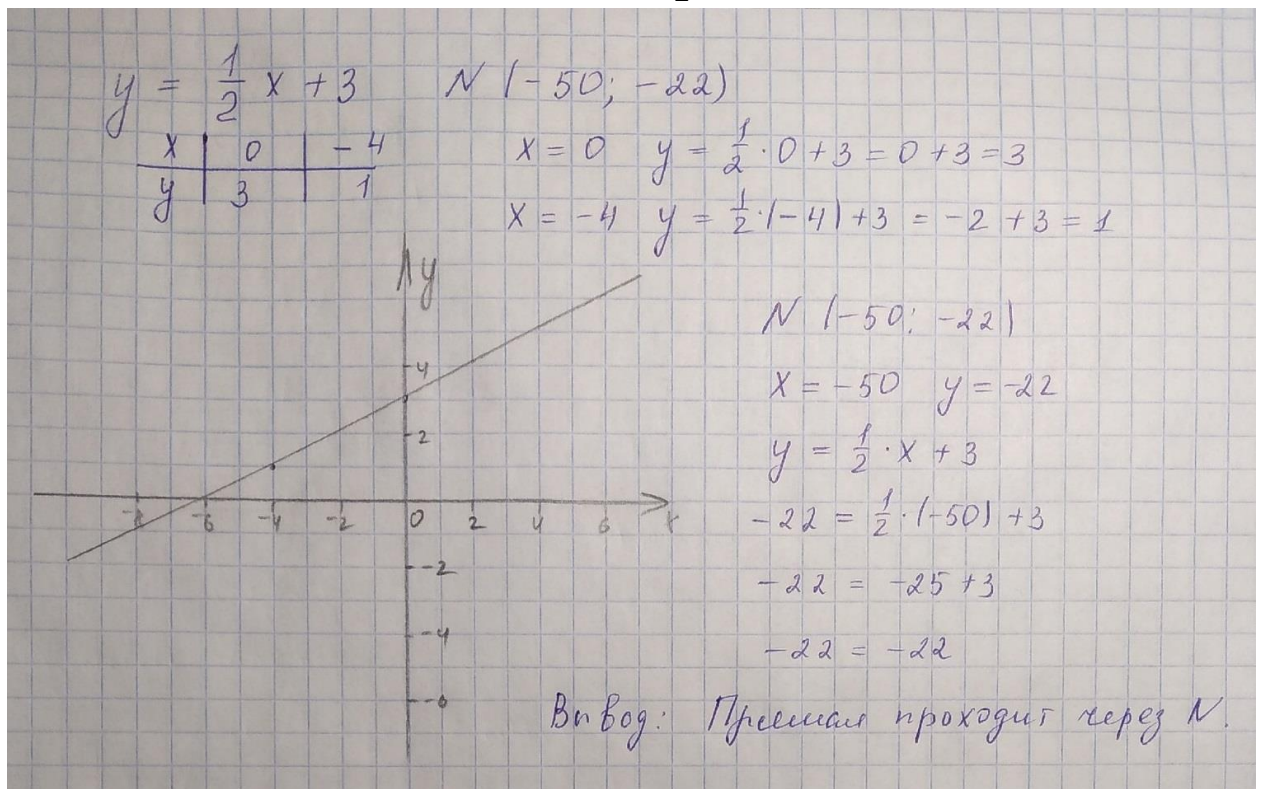 y = 1/2 x + 3 N (-50; -22)
x | 0 | -4
y | 3 | 1
x = 0 y = 1/2 · 0 + 3 = 0 + 3 = 3
x = -4 y = 1/2 · (-4) + 3 = -2 + 3 = 1
y
4
2
-8 -6 -4 -2 0 2 4 6 x
-2
-4
-6
N (-50; -22)
x = -50 y = -22
y = 1/2 · x + 3
-22 = 1/2 · (-50) + 3
-22 = -25 + 3
-22 = -22
Вывод: Прямая проходит через N.